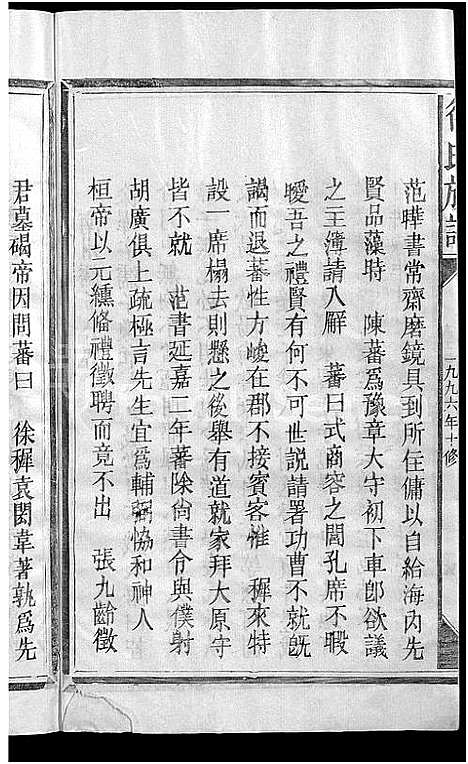 徐氏族譜
一九九六年十修
范曄書常齋磨鏡具到所在傭以自給海內先
賢品藻時　陳蕃為豫章大守初下車卽欲議
之主簿請入廨　蕃曰式商容之閭孔席不暇
曖吾之禮賢有不可世説請署功曹不就旣
謁而退蕃性方峻在郡不接賓客惟　穉來特
設一席榻去則懸之後舉有道就家拜大原守
皆不就　范書延嘉二年蕃除尙書令與僕射
胡廣俱上疏極言先生宜爲輔弼恊和神人
桓帝以元纁俻禮徵聘而竟不出　張九齡徵
君墓碣帝因問蕃曰　徐穉袁閎韋著孰爲先